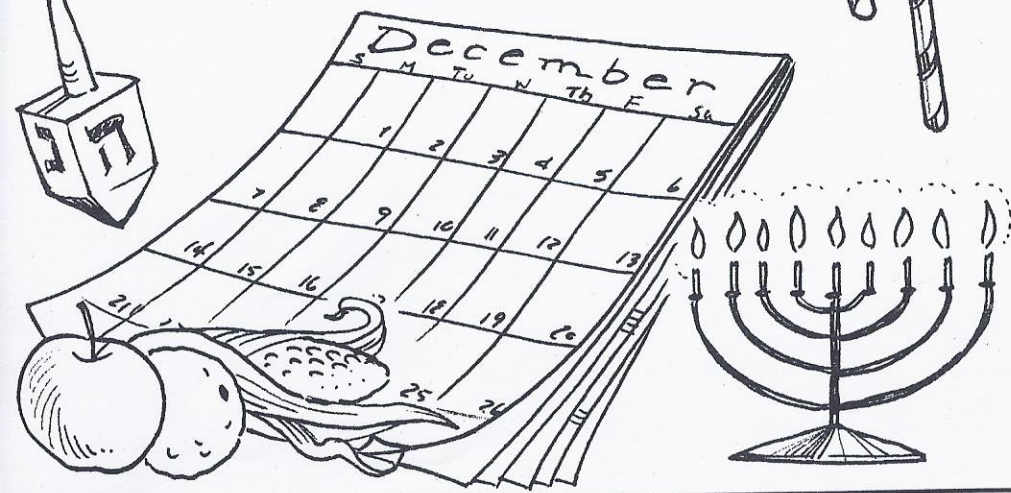 ה נ
December
S M Tu W Th F Sa
1 2 3 4 5 6
7 8 9 10 11 12 13
14 15 16 18 19 20
21 25 26